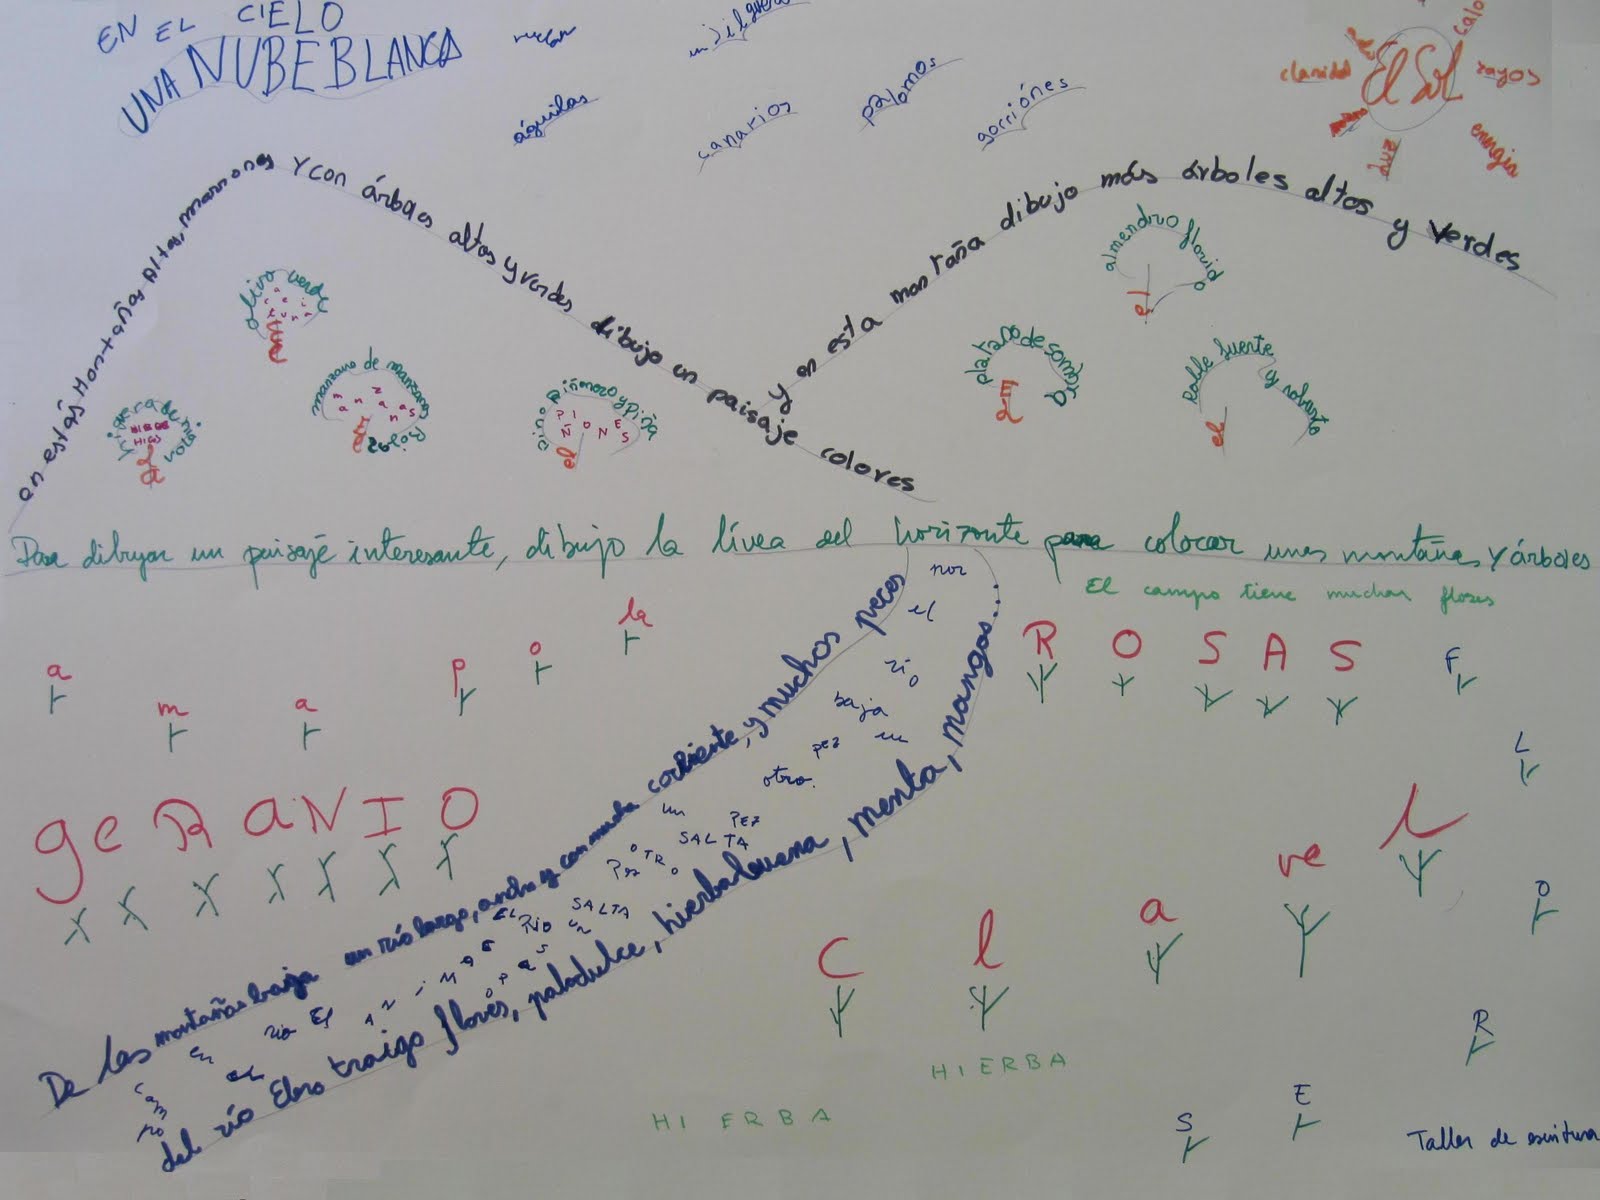 EN EL CIELO
UNA NUBE BLANCA
águilas
canarios
palomos
gorriónes
El Sol
claridad
rayos
energía
luz
en estás Montañas Altas, marrones y con árboles altos y verdes dibujo un paisaje colores
y en esta montaña dibujo más árboles altos y verdes
olivo verde
manzano de manzanas rojas
manzanas
el
PIÑONES
el
HIGOS
almendro florido
el
platano de sombra
Roble fuerte y robusto
el
Para dibujar un paisaje interesante, dibujo la línea del horizonte para colocar unas montañas y árboles
El campo tiene muchas flores
amapola
ROSAS
FLORES
geRANIO
Clavel
De las montañas baja un río largo, ancho y con mucha corriente, y muchos peces
por el río baja un pez
otro.
un
PEZ
SALTA
OTRO
PEZ
SALTA
UN
EL
RIO
en el
rio El
campo
del río Ebro traigo flores, palodulce, hierbabuena, menta, mangos...
HIERBA
HIERBA
Taller de escritura